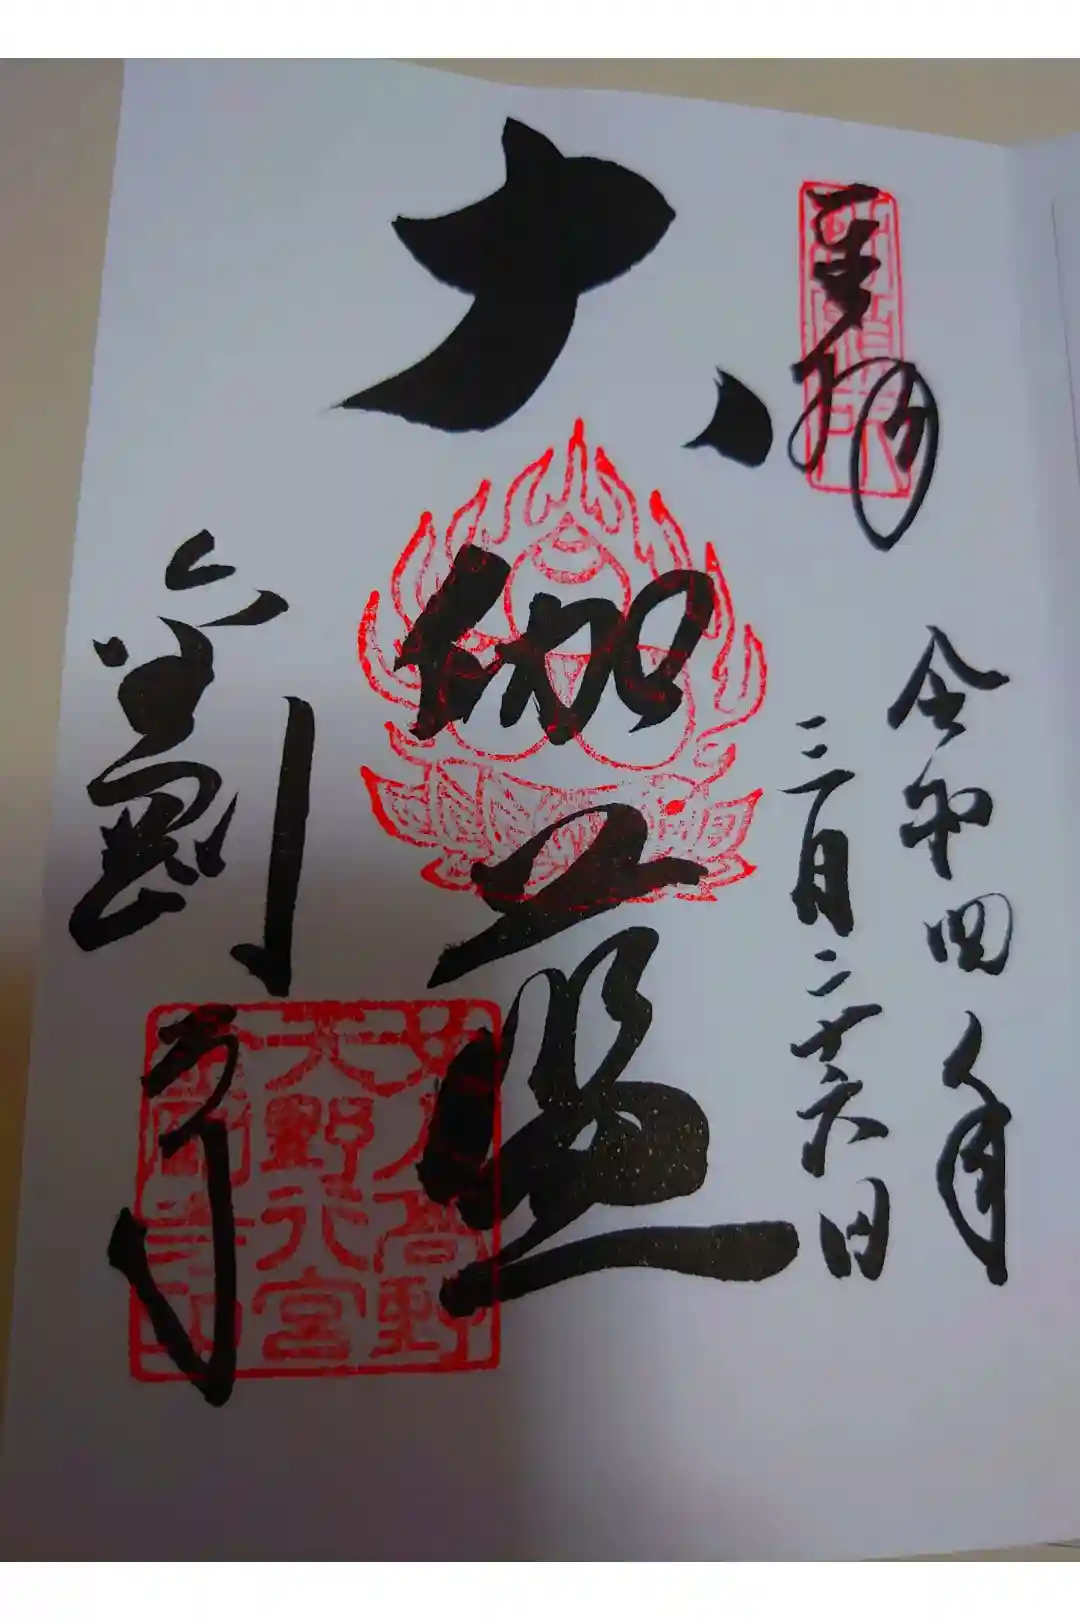 奉拝
令和四年
三月二十六日
大伽藍
金剛寺
女人高野
天野行宮
金剛寺印